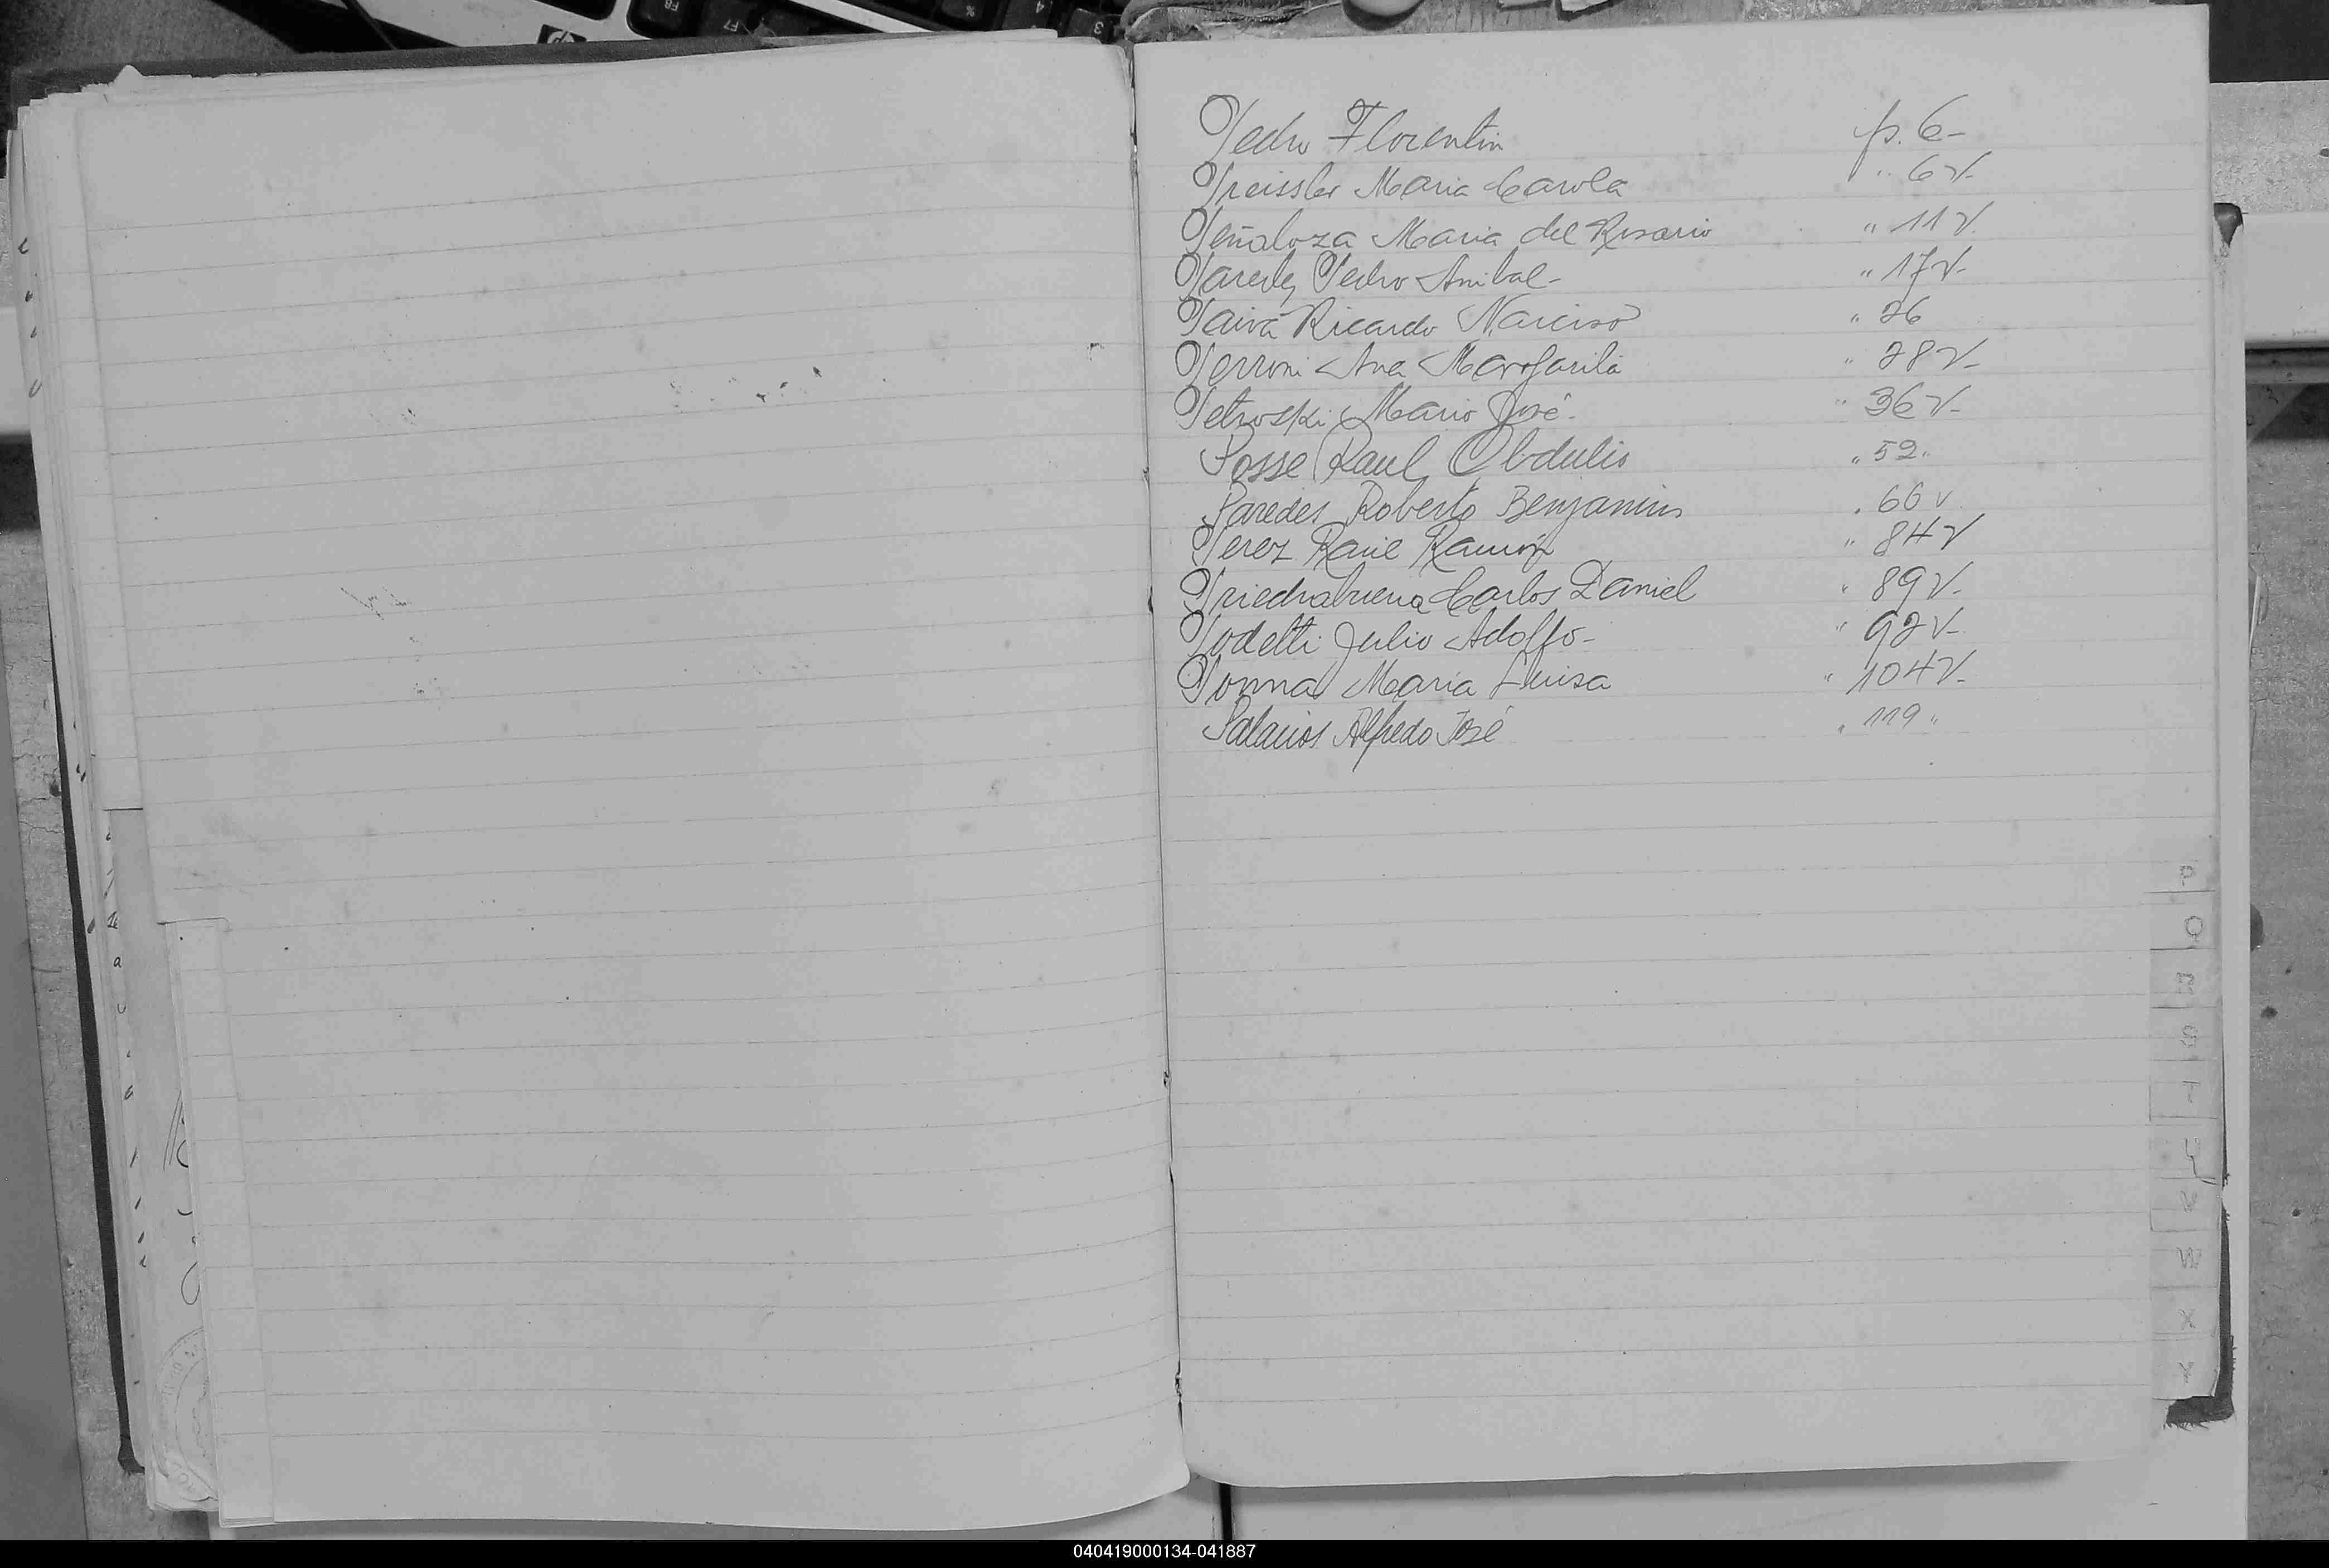 Pedro Florentin fs. 6-
Preissler Maria Carola " 6v-
Peñaloza Maria del Rosario " 11v.
Paredes Pedro Anibal- " 17v-
Paiva Ricardo Narciso " 26
Perroni Ana Margarita " 28v-
Petroski Mario José- " 36v-
Posse Raul Obdulio " 52"
Paredes Roberto Benjamin " 66v
Perez Raul Ramón " 84v
Priedrabuena Carlos Daniel " 89v-
Podetti Julio Adolfo- " 92v-
Ponna Maria Luisa " 104v-
Palacios Alfredo José " 119"
P
Q
R
S
T
U
V
W
X
Y
040419000134-041887